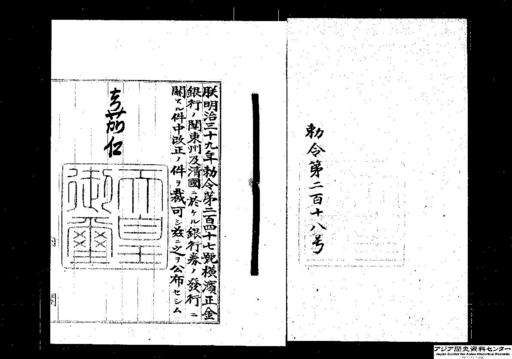 勅令第二百十八号
朕明治三十九年勅令第二百四十七號橫濱正金
銀行ノ關東州及清國ニ於ケル銀行券ノ發行ニ
關スル件中改正ノ件ヲ裁可シ玆ニ之ヲ公布セシム
嘉仁
天皇
御璽
アジア歴史資料センター
Japan Center for Asian Historical Records